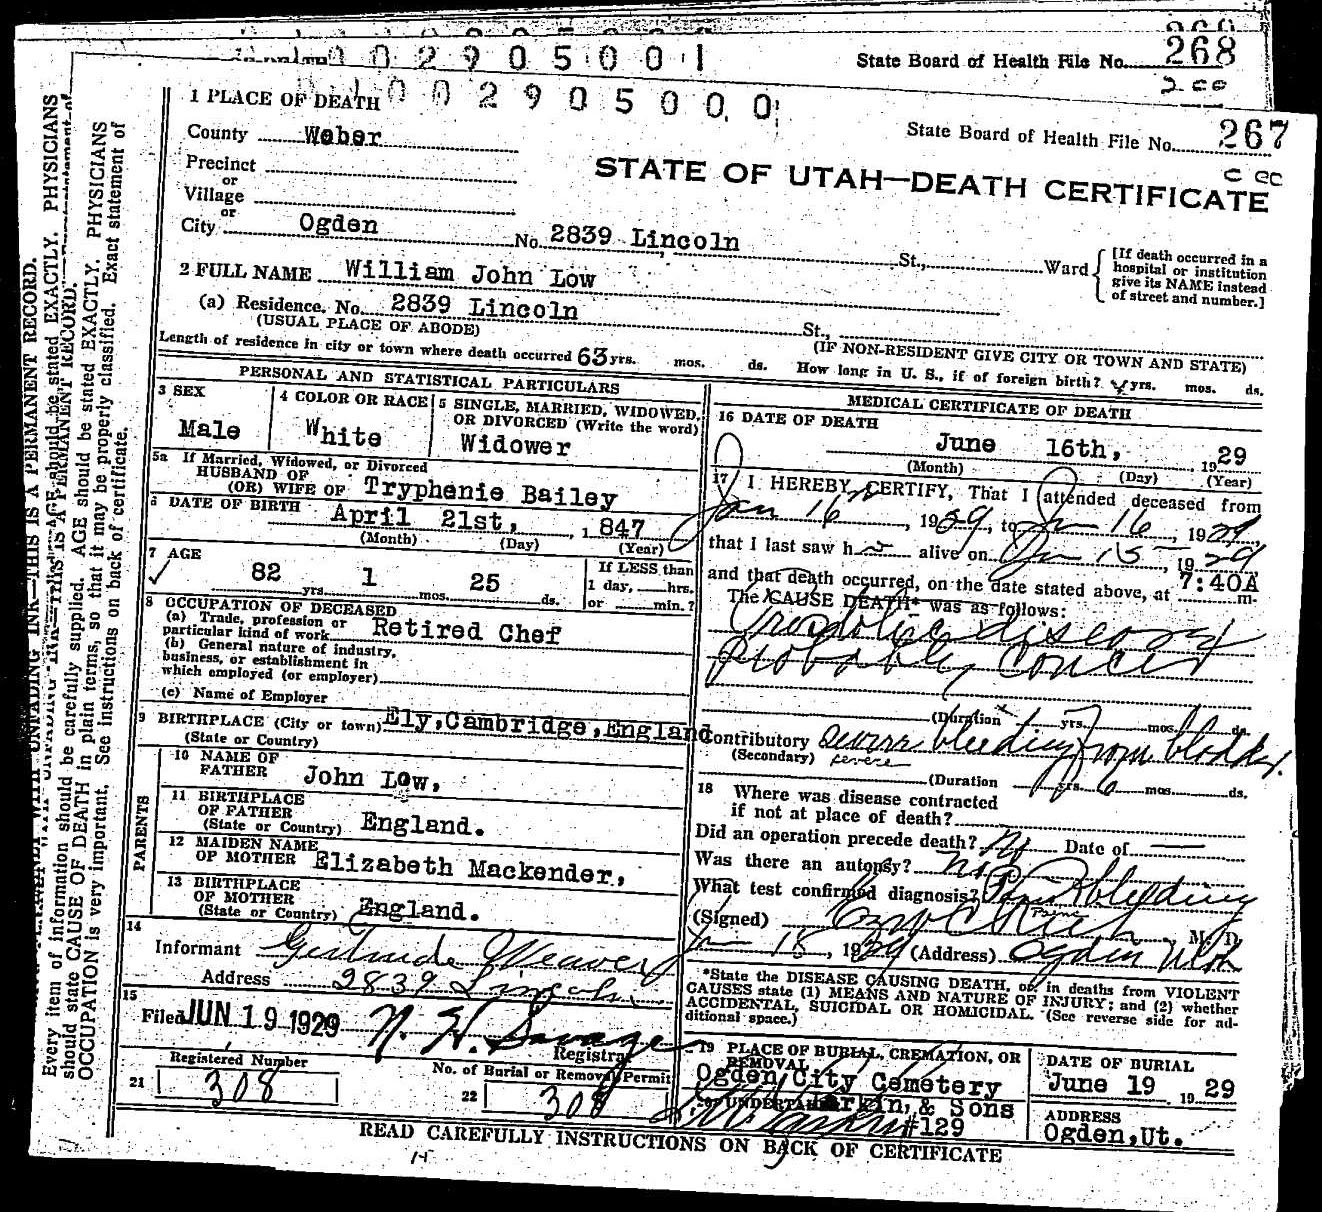 268
State Board of Health File No. 268
2 0 0 2 9 0 5 0 0 1
1 PLACE OF DEATH 0 0 2 9 0 5 0 0 0
State Board of Health File No. 267
County Weber
STATE OF UTAH—DEATH CERTIFICATE
Precinct
or
Village
or
City Ogden No. 2839 Lincoln St., Ward
[If death occurred in a
hospital or institution
give its NAME instead
of street and number.]
2 FULL NAME William John Low
(a) Residence. No. 2839 Lincoln St.,
(USUAL PLACE OF ABODE)
(IF NON-RESIDENT GIVE CITY OR TOWN AND STATE)
Length of residence in city or town where death occurred 63 yrs. mos. ds. How long in U. S., if of foreign birth? yrs. mos. ds.
PERSONAL AND STATISTICAL PARTICULARS
3 SEX
Male
4 COLOR OR RACE
White
5 SINGLE, MARRIED, WIDOWED,
OR DIVORCED (Write the word)
Widower
5a If Married, Widowed, or Divorced
HUSBAND OF
(OR) WIFE OF Tryphenie Bailey
6 DATE OF BIRTH April 21st, 1847
(Month) (Day) (Year)
7 AGE
82 yrs. 1 mos. 25 ds.
If LESS than
1 day, hrs.
or min.?
8 OCCUPATION OF DECEASED
(a) Trade, profession or
particular kind of work Retired Chef
(b) General nature of industry,
business, or establishment in
which employed (or employer)
(c) Name of Employer
9 BIRTHPLACE (City or town) Ely, Cambridge, England
(State or Country)
PARENTS
10 NAME OF
FATHER John Low,
11 BIRTHPLACE
OF FATHER
(State or Country) England.
12 MAIDEN NAME
OF MOTHER Elizabeth Mackender,
13 BIRTHPLACE
OF MOTHER
(State or Country) England.
14
Informant Gertrude Weaver
Address 2839 Lincoln
15
Filed JUN 19 1929 N. H. Savage
Registrar
Registered Number
21 308
No. of Burial or Removal Permit
22 308
MEDICAL CERTIFICATE OF DEATH
16 DATE OF DEATH
June 16th, 1929
(Month) (Day) (Year)
17 I HEREBY CERTIFY, That I attended deceased from
Jan 16, 1929, to Jun 16, 1929
that I last saw h alive on Jun 15 1929
and that death occurred, on the date stated above, at 7:40A m.
The CAUSE DEATH* was as follows:
probably Cancer
(Duration yrs. mos. ds.
Contributory severe bleeding from bladder.
(Secondary) severe
(Duration yrs. 6 mos. ds.
18 Where was disease contracted
if not at place of death?
Did an operation precede death? No Date of
Was there an autopsy? No
What test confirmed diagnosis? bleeding
(Signed) Rich M. D.
Jun 18, 1929 (Address) Ogden Utah
*State the DISEASE CAUSING DEATH, or, in deaths from VIOLENT
CAUSES state (1) MEANS AND NATURE OF INJURY; and (2) whether
ACCIDENTAL, SUICIDAL OR HOMICIDAL. (See reverse side for ad-
ditional space.)
19 PLACE OF BURIAL, CREMATION, OR
REMOVAL
Ogden City Cemetery
DATE OF BURIAL
June 19 1929
20 UNDERTAKER Larkin, & Sons
#129
ADDRESS
Ogden, Ut.
READ CAREFULLY INSTRUCTIONS ON BACK OF CERTIFICATE
Every item of information should be carefully supplied. AGE should be stated EXACTLY. PHYSICIANS
should state CAUSE OF DEATH in plain terms, so that it may be properly classified. Exact statement of
OCCUPATION is very important. See instructions on back of certificate.